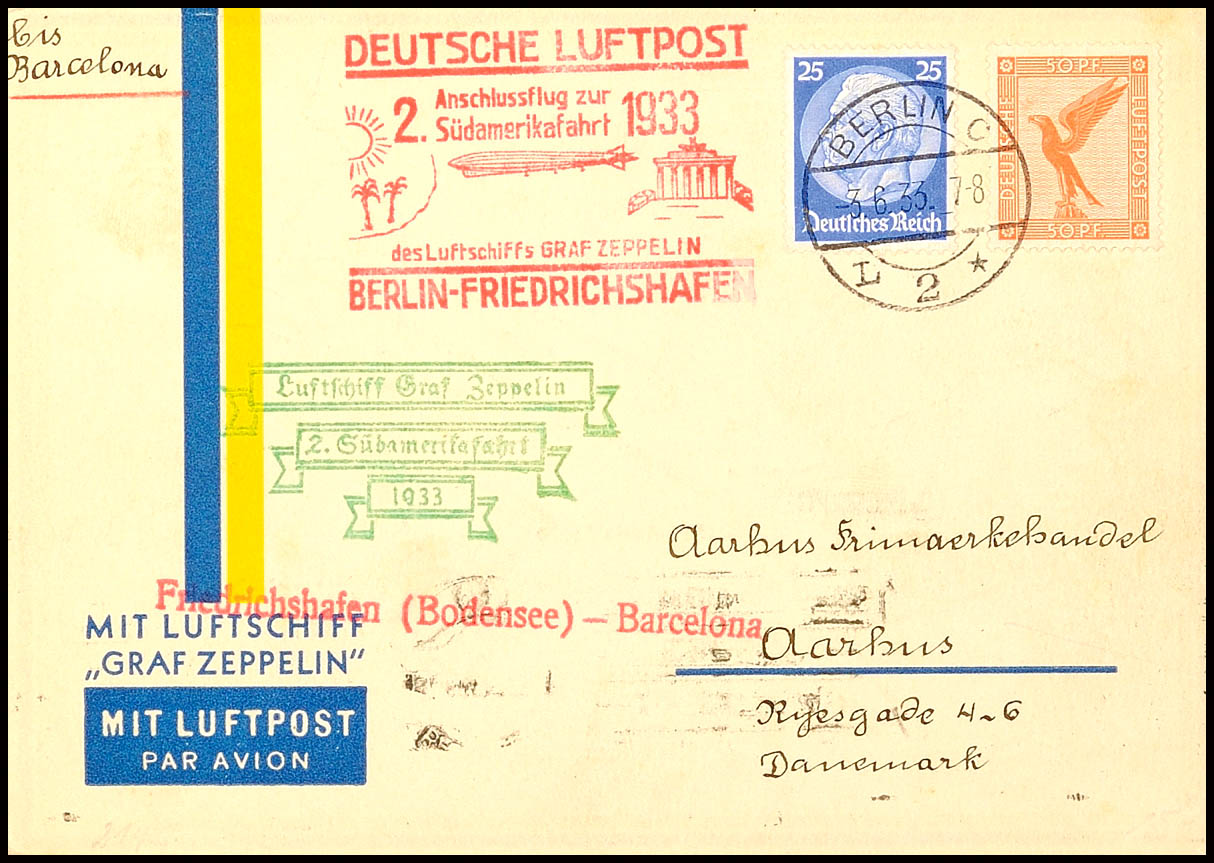 bis
Barcelona
DEUTSCHE LUFTPOST
2. Anschlussflug zur
Südamerikafahrt 1933
des Luftschiffs GRAF ZEPPELIN
BERLIN-FRIEDRICHSHAFEN
25 25
Deutsches Reich
BERLIN C
-3.6.33. 7-8
L 2 *
50 PF.
DEUTSCHE
LUFTPOST
50 PF.
Luftschiff Graf Zeppelin
2. Südamerikafahrt
1933
Aarhus Frimaerkehandel
Friedrichshafen (Bodensee) – Barcelona
MIT LUFTSCHIFF
„GRAF ZEPPELIN"
Aarhus
MIT LUFTPOST
PAR AVION
Ryesgade 4-6
Danemark